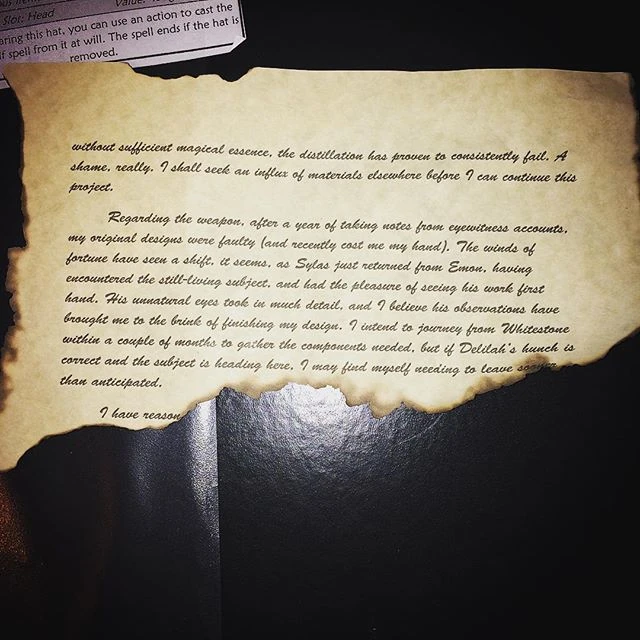 Slot: Head
Value:
aring this hat, you can use an action to cast the
f spell from it at will. The spell ends if the hat is
removed.
without sufficient magical essence, the distillation has proven to consistently fail. A
shame, really. I shall seek an influx of materials elsewhere before I can continue this
project.
Regarding the weapon, after a year of taking notes from eyewitness accounts,
my original designs were faulty (and recently cost me my hand). The winds of
fortune have seen a shift, it seems, as Sylas just returned from Emon, having
encountered the still-living subject, and had the pleasure of seeing his work first
hand. His unnatural eyes took in much detail, and I believe his observations have
brought me to the brink of finishing my design. I intend to journey from Whitestone
within a couple of months to gather the components needed, but if Delilah's hunch is
correct and the subject is heading here, I may find myself needing to leave sooner
than anticipated.
I have reason